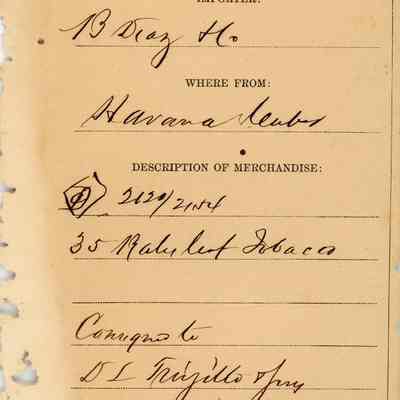 IMPORTER:
B Diaz & Co
WHERE FROM:
Havana Cuba
DESCRIPTION OF MERCHANDISE:
2120/2154
35 Bales leaf Tobacco
Consigned to
D L Trujillo & Sons